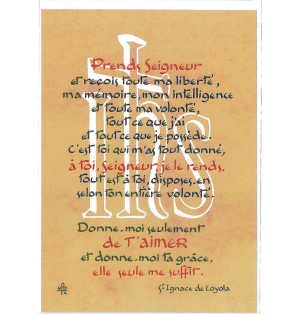 IHS
Prends Seigneur
et reçois toute ma liberté,
ma mémoire, mon intelligence
et toute ma volonté,
tout ce que j'ai
et tout ce que je possède.
C'est toi qui m'as tout donné,
à toi, Seigneur, je le rends,
tout est à toi, disposes-en
selon ton entière volonté.
Donne-moi seulement
de T'AIMER
et donne-moi ta grâce,
elle seule me suffit.
St Ignace de Loyola